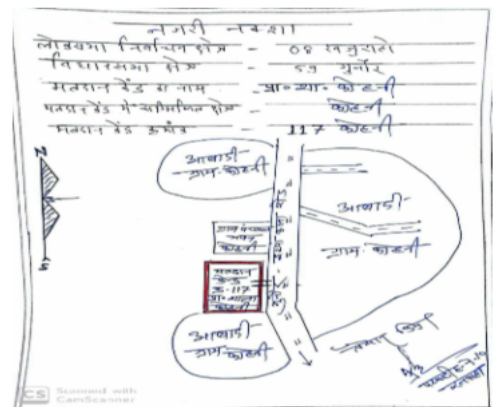 नजरी नक्शा
लोकसभा निर्वाचन क्षेत्र - 08 खजुराहो
विधानसभा क्षेत्र - 59 गुनौर
मतदान केंद्र का नाम - प्रा० शा० कोहनी
मतदान केंद्र में सम्मिलित क्षेत्र - कोहनी
मतदान केंद्र क्रमांक - 117 कोहनी
N
आबादी
ग्राम-कोहनी
आबादी
ग्राम-कोहनी
ग्राम पंचायत
भवन
कोहनी
मतदान
केन्द्र
क्र-117
प्रा० शाला
कोहनी
आबादी
ग्राम-कोहनी
CS Scanned with
CamScanner